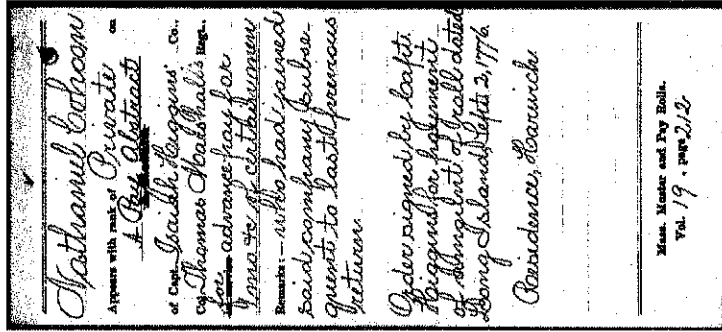 Nathaniel Cohoon
Appears with rank of Private on
A Pay Abstract
of Capt. Isaiah Higgins' Co.,
Col. Thomas Marshall's Regt.,
for advance pay for
1 mo. of certain men
Remarks:— who had joined
said company subse-
quent to last previous
return.
Order signed by Capt.
Higgins for payment
of amount of roll dated
Long Island, Sept. 2, 1776.
Residence, Harwich.
Mass. Muster and Pay Rolls.
Vol. 19, page 212